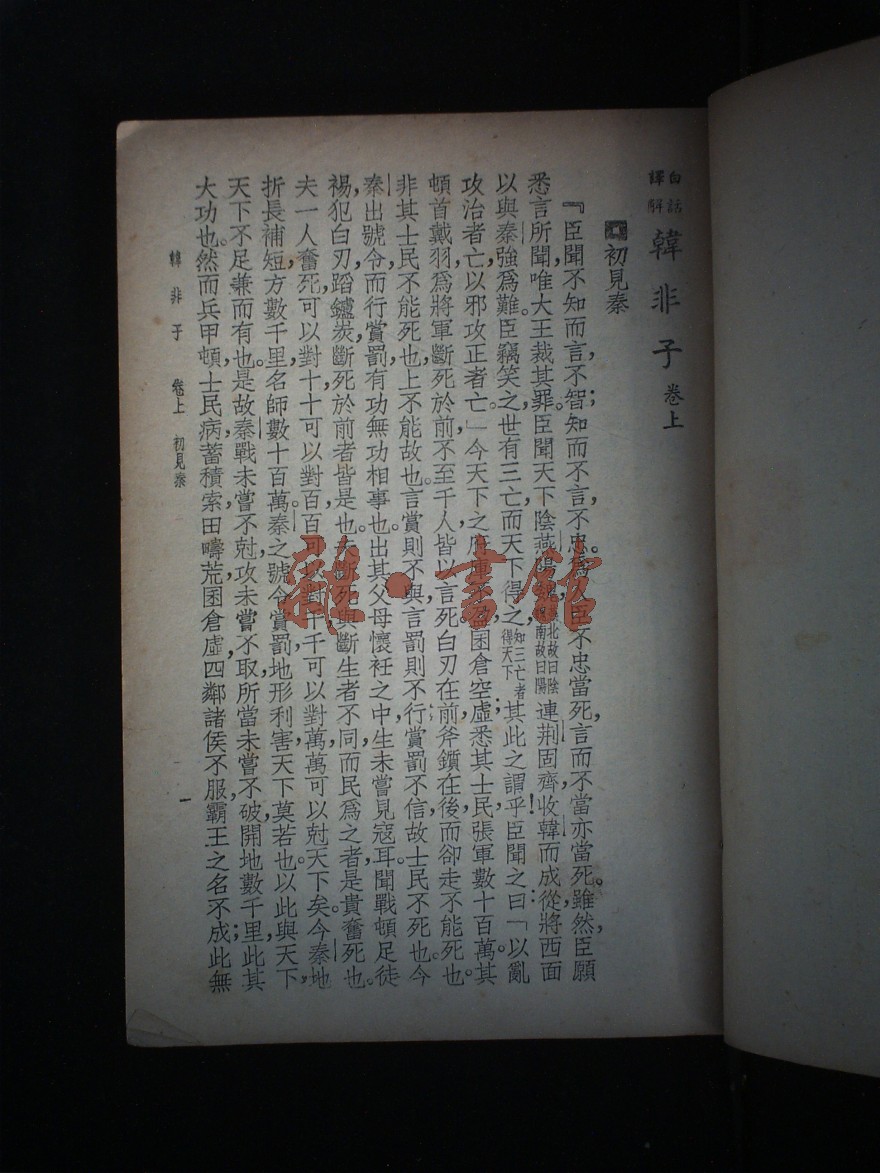 白話譯解 韓非子 卷上
初見秦
『臣聞不知而言,不智;知而不言,不忠。爲人臣不忠當死,言而不當,亦當死。雖然,臣願
悉言所聞,唯大王裁其罪。臣聞天下陰燕陽 北故曰陰 南故曰陽 連荆固齊,收韓而成從,將西面
以與秦強爲難。臣竊笑之,世有三亡,而天下得之,知三亡者得天下 其此之謂乎!臣聞之曰:「以亂
攻治者亡,以邪攻正者亡。」今天下之府庫不盈,囷倉空虛,悉其士民,張軍數十百萬。其
頓首戴羽爲將軍,斷死於前,不至千人,皆以言死,白刃在前,斧鑕在後,而卻走不能死也,
非其士民不能死也,上不能故也。言賞則不與,言罰則不行,賞罰不信,故士民不死也。今
秦出號令而行賞罰,有功無功相事也。出其父母懷衽之中,生未嘗見寇耳,聞戰頓足徒
裼,犯白刃,蹈鑪炭,斷死於前者皆是也。夫斷死與斷生者不同,而民爲之者,是貴奮死也。
夫一人奮死可以對十,十可以對百,百可以對千,千可以對萬,萬可以尅天下矣。今秦地
折長補短,方數千里,名師數十百萬。秦之號令賞罰,地形利害,天下莫若也。以此與天下,
天下不足兼而有也。是故秦戰未嘗不尅,攻未嘗不取,所當未嘗不破,開地數千里,此其
大功也。然而兵甲頓,士民病,蓄積索,田疇荒,囷倉虛,四鄰諸侯不服,霸王之名不成,此無
韓非子 卷上 初見秦
一
雜·書館